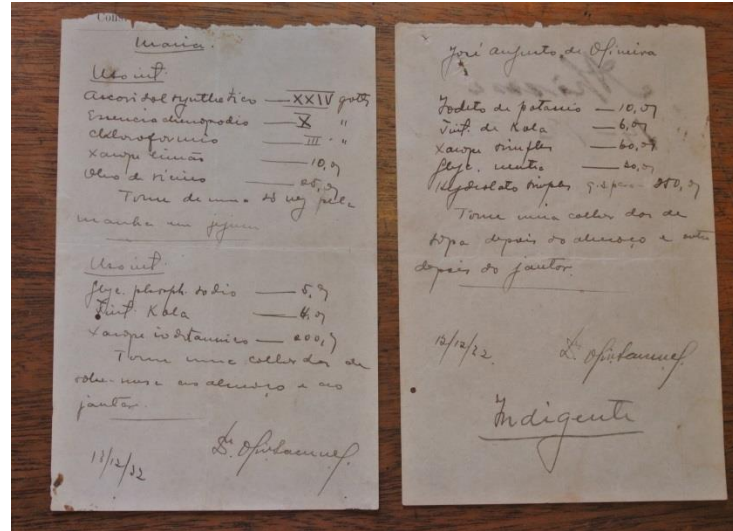 Cons
Maria.
Uso int.
Ascaridol synthetico — XXIV gottas
Essencia chenopodio — X "
Chloroformio — III "
Xarope limão — 10,0g
Oleo de ricino — 25,0g
Tome de uma só vez pela
manhã em jejum
Uso int.
Glyc. phosph. sodio — 5,0g
Tint. Kola — 6,0g
Xarope iodotannico — 200,0g
Tome uma colher das de
ao almoço e ao
jantar.
13/12/32
Dr.
José Augusto de Oliveira
Iodeto de potassio — 10,0g
Tint. de Kola — 6,0g
Xarope simples — 60,0g
Glyc. neutra — 20,0g
Hydrolato simples q.s.p. — 250,0g
Tome uma colher das de
sopa depois do almoço e outra
depois do jantar.
12/12/32
Dr.
Indigente